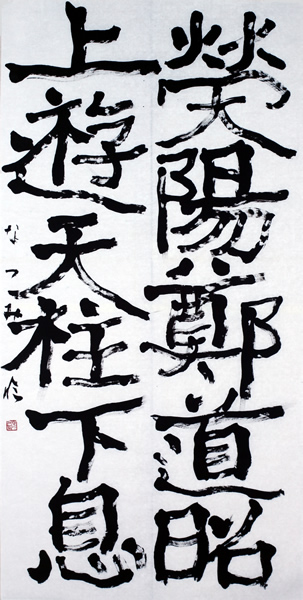 熒陽鄭道昭
上遊天柱下息
なつみ临